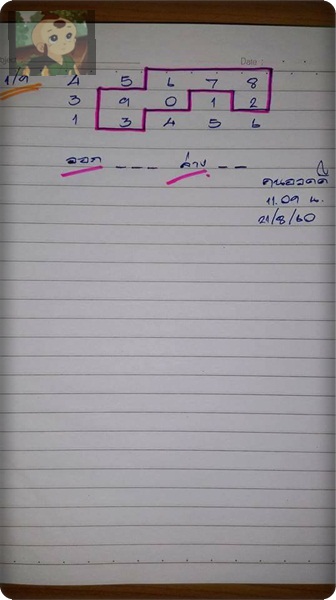 Date
1/9 4 5 6 7 8
3 9 0 1 2
1 3 4 5 6
ออก _ _ _ ล่าง _ _
11.09 น.
21/8/60